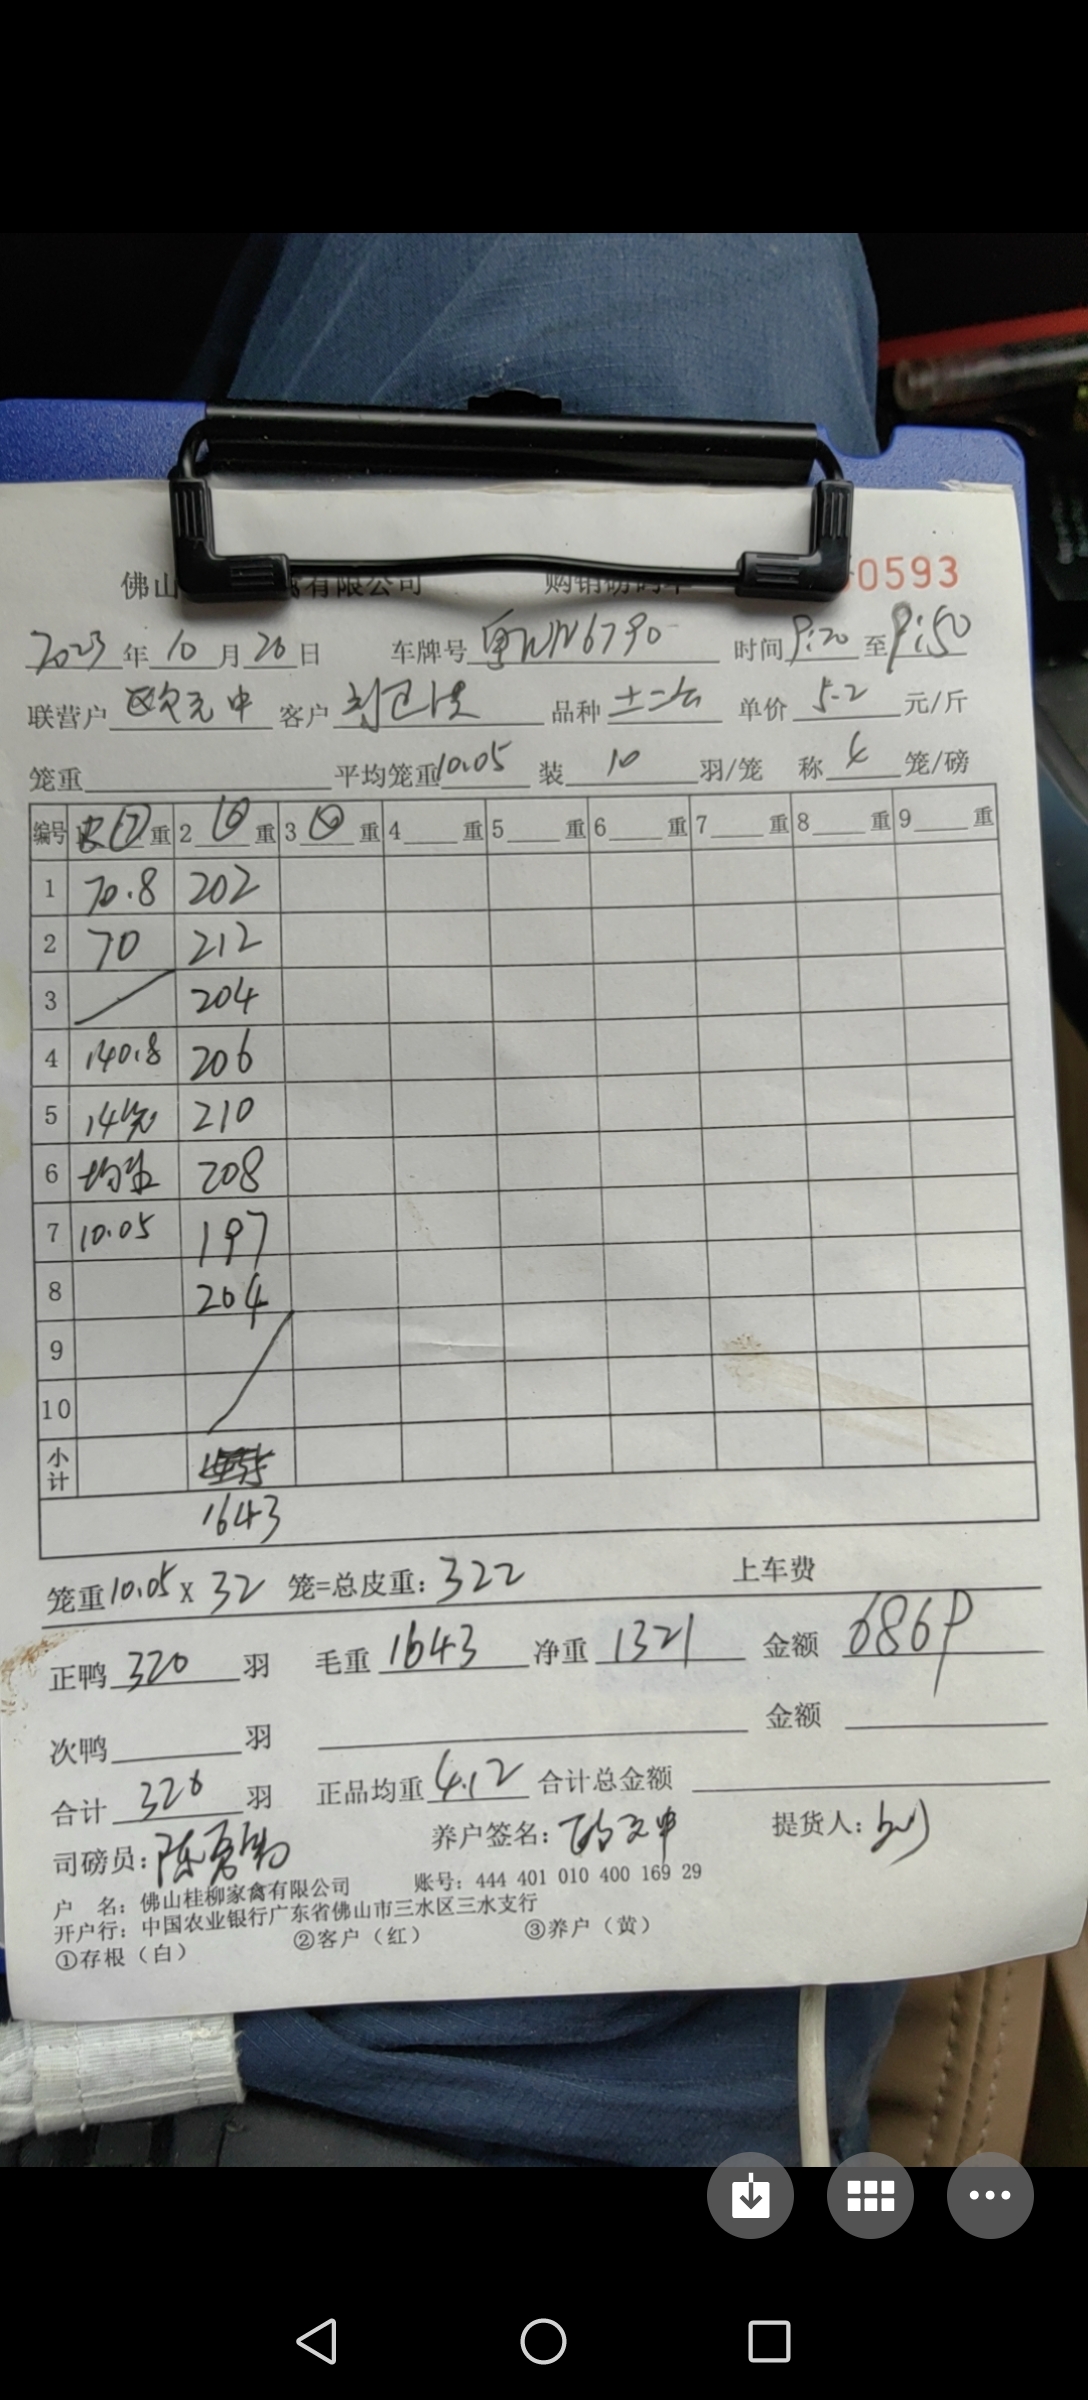 佛山 禽有限公司 购销磅码单 0593
2023年10月26日 车牌号 WN6790 时间9:20至9:50
联营户 欧元中 客户 品种 单价5.2元/斤
笼重 平均笼重10.05 装10羽/笼 称4笼/磅
编号 重 2 重 3 重 4 重 5 重 6 重 7 重 8 重 9 重
1 70.8 202
2 70 212
3 204
4 140.8 206
5 14 210
6 208
7 10.05 197
8 204
9
10
小计
1643
笼重10.05 x 32 笼=总皮重：322 上车费
正鸭320羽 毛重1643 净重1321 金额6869
次鸭 羽 金额
合计320羽 正品均重4.12 合计总金额
司磅员：陈 养户签名： 提货人：
户 名：佛山桂柳家禽有限公司 账号：444 401 010 400 169 29
开户行：中国农业银行广东省佛山市三水区三水支行
①存根（白） ②客户（红） ③养户（黄）